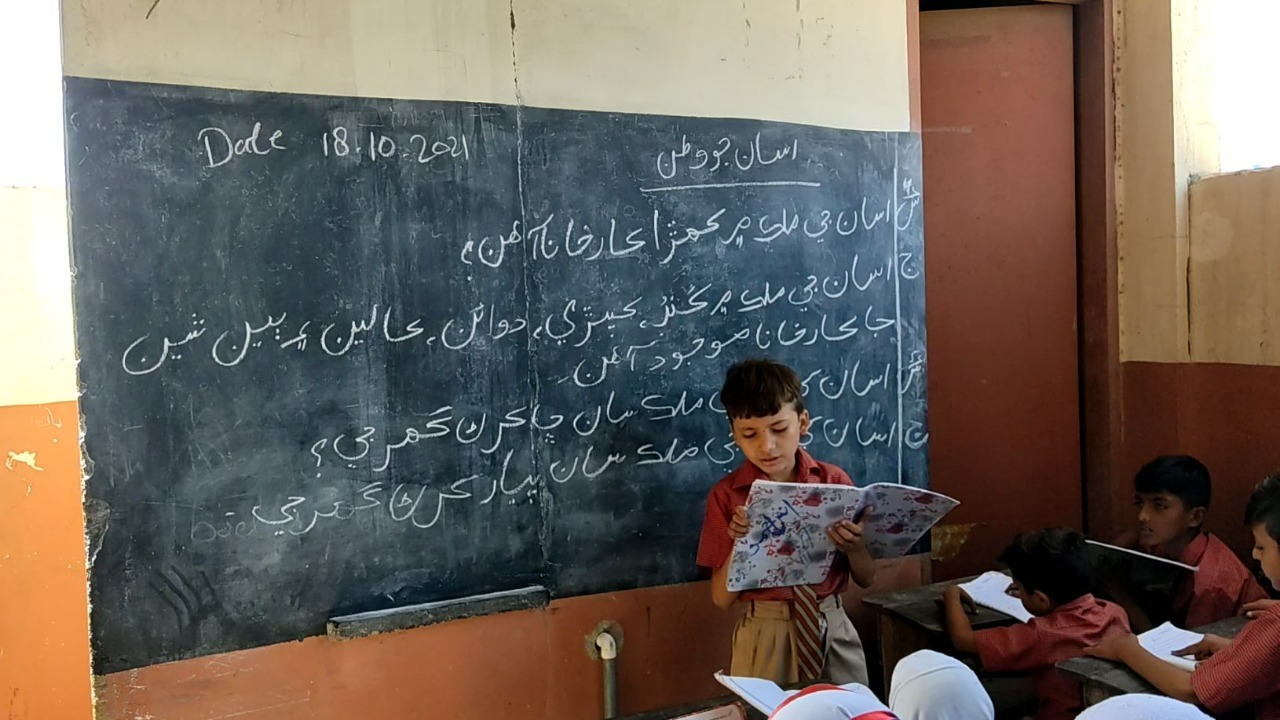 Date 18.10.2021
اسان جو وطن
س اسان جي ملڪ ۾ ڪهڙا ڪارخانا آهن؟
ج اسان جي ملڪ ۾ کنڊ، ڪپڙي، دوائن، ڪالين ۽ ٻين شين
جا ڪارخانا موجود آهن۔
س اسان ملڪ سان ڇا ڪرڻ گهرجي؟
ج اسان ملڪ سان پيار ڪرڻ گهرجي۔